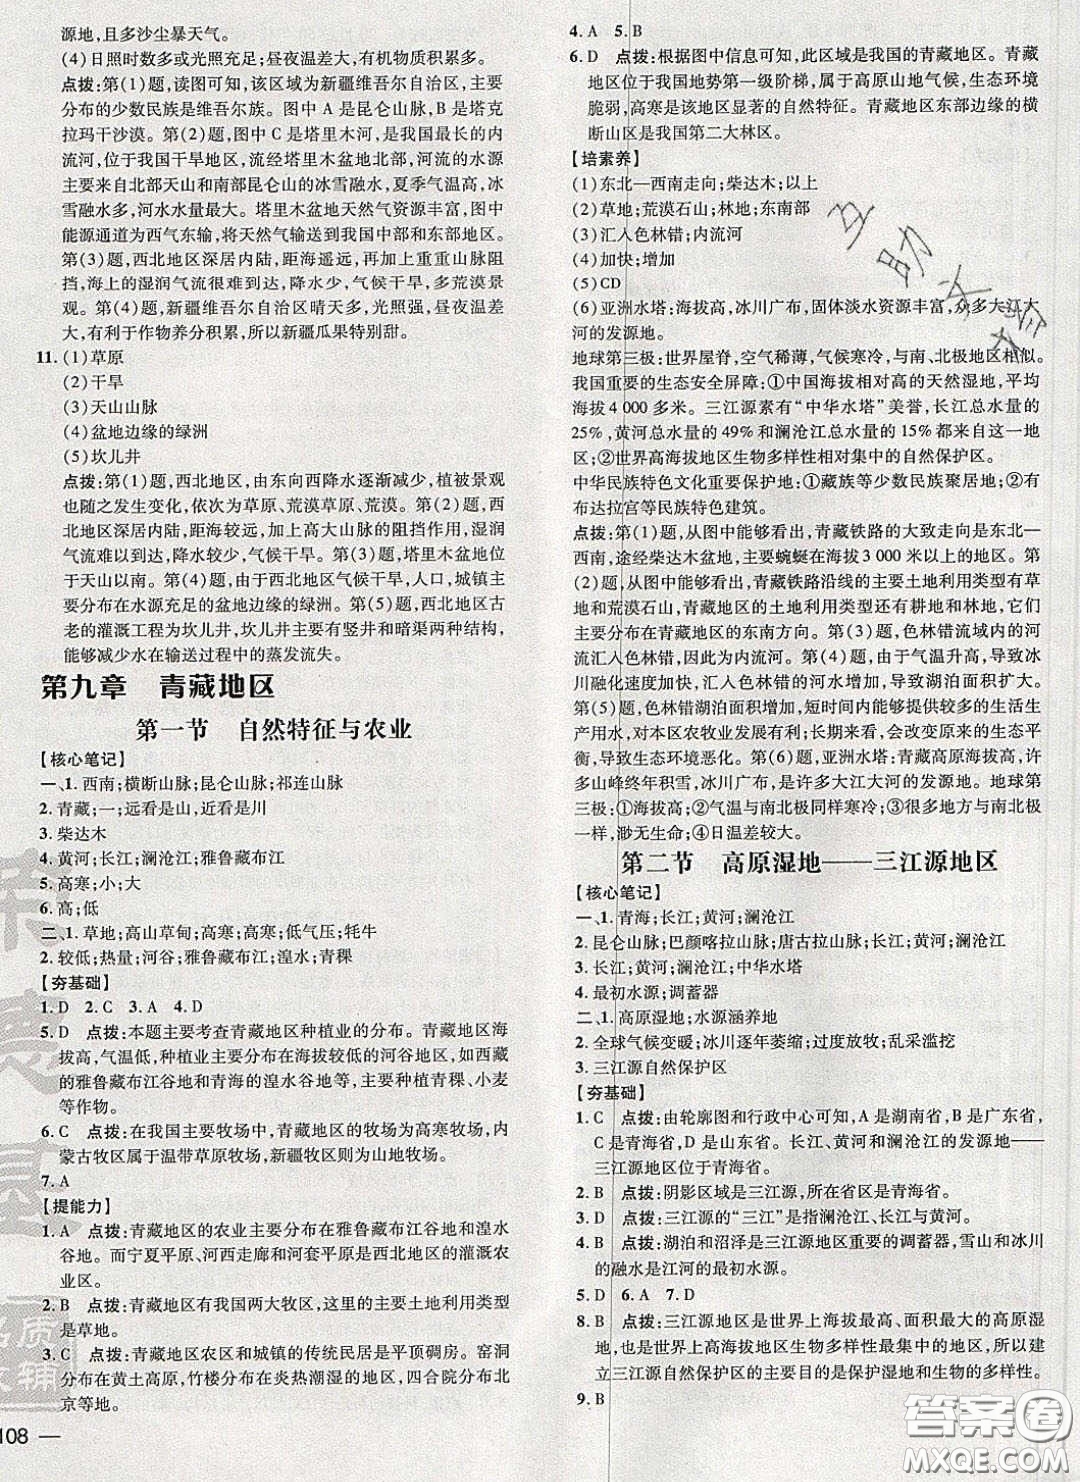 源地,且多沙尘暴天气。
(4)日照时数多或光照充足;昼夜温差大,有机物质积累多。
点拨:第(1)题,读图可知,该区域为新疆维吾尔自治区,主要
分布的少数民族是维吾尔族。图中 A 是昆仑山脉,B 是塔克
拉玛干沙漠。第(2)题,图中 C 是塔里木河,是我国最长的内
流河,位于我国干旱地区,流经塔里木盆地北部,河流的水源
主要来自北部天山和南部昆仑山的冰雪融水,夏季气温高,冰
雪融水多,河水水量最大。塔里木盆地天然气资源丰富,图中
能源通道为西气东输,将天然气输送到我国中部和东部地区。
第(3)题,西北地区深居内陆,距海遥远,再加上重重山脉阻
挡,海上的湿润气流难以到达,降水少,气候干旱,多荒漠景
观。第(4)题,新疆维吾尔自治区晴天多,光照强,昼夜温差
大,有利于作物养分积累,所以新疆瓜果特别甜。
11. (1)草原
(2)干旱
(3)天山山脉
(4)盆地边缘的绿洲
(5)坎儿井
点拨:第(1)题,西北地区,由东向西降水逐渐减少,植被景观
也随之发生变化,依次为草原、荒漠草原、荒漠。第(2)题,西
北地区深居内陆,距海较远,加上高大山脉的阻挡作用,湿润
气流难以到达,降水较少,气候干旱。第(3)题,塔里木盆地位
于天山以南。第(4)题,由于西北地区气候干旱,人口,城镇主要
分布在水源充足的盆地边缘的绿洲。第(5)题,西北地区古
老的灌溉工程为坎儿井,坎儿井主要有竖井和暗渠两种结构,
能够减少水在输送过程中的蒸发流失。
第九章 青藏地区
第一节 自然特征与农业
【核心笔记】
一、1. 西南;横断山脉;昆仑山脉;祁连山脉
2. 青藏;一;远看是山,近看是川
3. 柴达木
4. 黄河;长江;澜沧江;雅鲁藏布江
5. 高寒;小;大
6. 高;低
二、1. 草地;高山草甸;高寒;低气压;牦牛
2. 较低;热量;河谷;雅鲁藏布江;湟水;青稞
【夯基础】
1. D 2. C 3. A 4. D
5. D 点拨:本题主要考查青藏地区种植业的分布。青藏地区海
拔高,气温低,种植业主要分布在海拔较低的河谷地区,如西藏
的雅鲁藏布江谷地和青海的湟水谷地等,主要种植青稞、小麦
等作物。
6. C 点拨:在我国主要牧场中,青藏地区的牧场为高寒牧场,内
蒙古牧区属于温带草原牧场,新疆牧区则为山地牧场。
7. A
【提能力】
1. A 点拨:青藏地区的农业主要分布在雅鲁藏布江谷地和湟水
谷地。而宁夏平原、河西走廊和河套平原是西北地区的灌溉农
业区。
2. B 点拨:青藏地区有我国两大牧区,这里的主要土地利用类型
是草地。
3. C 点拨:青藏地区农区和城镇的传统民居是平顶碉房。窑洞
分布在黄土高原,竹楼分布在炎热潮湿的地区,四合院分布在
北京等地。
108 —
4. A 5. B
6. D 点拨:根据图中信息可知,此区域是我国的青藏地区。青藏
地区位于我国地势第一级阶梯,属于高原山地气候,生态环境
脆弱,高寒是该地区显著的自然特征。青藏地区东部边缘的横
断山区是我国第二大林区。
【培素养】
(1)东北—西南走向;柴达木;以上
(2)草地;荒漠石山;林地;东南部
(3)汇入色林错;内流河
(4)加快;增加
(5)CD
(6)亚洲水塔:海拔高,冰川广布,固体淡水资源丰富,众多大江大
河的发源地。
地球第三极:世界屋脊,空气稀薄,气候寒冷,与南、北极地区相似。
我国重要的生态安全屏障:①中国海拔相对高的天然湿地,平均
海拔 4 000 多米。三江源素有“中华水塔”美誉,长江总水量的
25%,黄河总水量的 49%和澜沧江总水量的 15%都来自这一地
区;②世界高海拔地区生物多样性相对集中的自然保护区。
中华民族特色文化重要保护地:①藏族等少数民族聚居地;②有
布达拉宫等民族特色建筑。
点拨:第(1)题,从图中能够看出,青藏铁路的大致走向是东北—
西南,途经柴达木盆地,主要蜿蜒在海拔 3 000 米以上的地区。第
(2)题,从图中能够看出,青藏铁路沿线的主要土地利用类型有草
地和荒漠石山,青藏地区的土地利用类型还有耕地和林地,它们
主要分布在青藏地区的东南方向。第(3)题,色林错流域内的河
流汇入色林错,因此为内流河。第(4)题,由于气温升高,导致冰
川融化速度加快,汇入色林错的河水增加,导致湖泊面积扩大。
第(5)题,色林错湖泊面积增加,短时间能够提供较多的生活生
产用水,对本区农牧业发展有利;长期来看,会改变原来的生态环
境,导致生态环境恶化。第(6)题,亚洲水塔:青藏高原海拔高,许
多山峰终年积雪,冰川广布,是许多大江大河的发源地。地球第
三极:①海拔高;②气温与南北极同样寒冷;③很多地方与南北极
一样,渺无生命;④日温差较大。
第二节 高原湿地——三江源地区
【核心笔记】
一、1. 青海;长江;黄河;澜沧江
2. 昆仑山脉;巴颜喀拉山脉;唐古拉山脉;长江源
3. 长江;黄河;澜沧江;中华水塔
4. 最初水源;调蓄器
二、1. 高原湿地;水源涵养地
2. 全球气候变暖;冰川逐年萎缩;过度放牧;乱采滥挖
3. 三江源自然保护区
【夯基础】
1. C 点拨:由轮廓图和行政中心可知,A 是湖南省,B 是广东省,
C 是青海省,D 是山东省。长江、黄河和澜沧江的发源地——
三江源地区位于青海省。
2. B 点拨:阴影区域是三江源,所在省区为青海省。
3. B 点拨:三江源的“三江”是指澜沧江、长江与黄河。
4. B 点拨:湖泊和沼泽是三江源地区重要的调蓄器,雪山和冰川
的融水是江河的最初水源。
5. D 6. A 7. D
8. B 点拨:三江源地区是世界上海拔最高、面积最大的高原湿
地,是世界上高海拔地区生物多样性最集中的地区,所以建
立三江源自然保护区的主要目的是保护湿地和生物的多样性。
9. B
互助文
答案圈
MXQE.COM